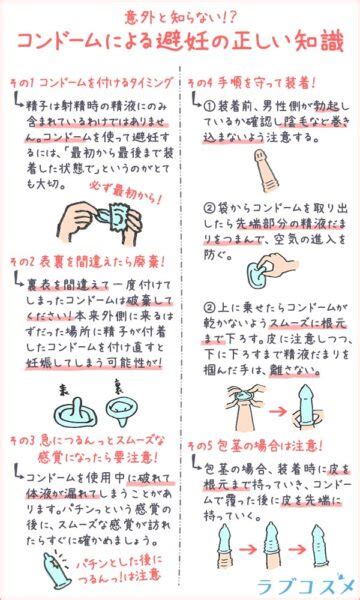 意外と知らない!?
コンドームによる避妊の正しい知識
その1 コンドームを付けるタイミング
精子は射精時の精液にのみ
含まれているわけではありま
せん。コンドームを使って避妊す
るには、「最初から最後まで装
着した状態で」というのがとて
も大切。
必ず最初から!
その2 表裏を間違えたら廃棄!
裏表を間違えて一度付けて
しまったコンドームは破棄して
ください!本来外側に来るは
ずだった場所に精子が付着
したコンドームを付け直すと
妊娠してしまう可能性が!
表
裏
その3 急につるんっとスムーズな
感覚になったら要注意!
コンドームを使用中に破れて
体液が漏れてしまうことがあ
ります。パチンッという感覚の
後に、スムーズな感覚が訪れ
たらすぐに確かめましょう。
パチンとした後に
つるんっ!は注意
その4 手順を守って装着!
①装着前、男性側が勃起し
ているか確認し陰毛など巻き
込まないよう注意する。
②袋からコンドームを取り出
したら先端部分の精液だ
まりをつまんで、空気の進入を
防ぐ。
②上に乗せたらコンドームが
乾かないようスムーズに根元
まで下ろす。皮に注意しつつ、
下に下ろすまで精液だまりを
掴んだ手は、離さない。
その5 包茎の場合は注意!
包茎の場合、装着時に皮を
根元まで持っていき、コンドー
ムで覆った後に皮を先端に
持っていく。
ラブコスメ